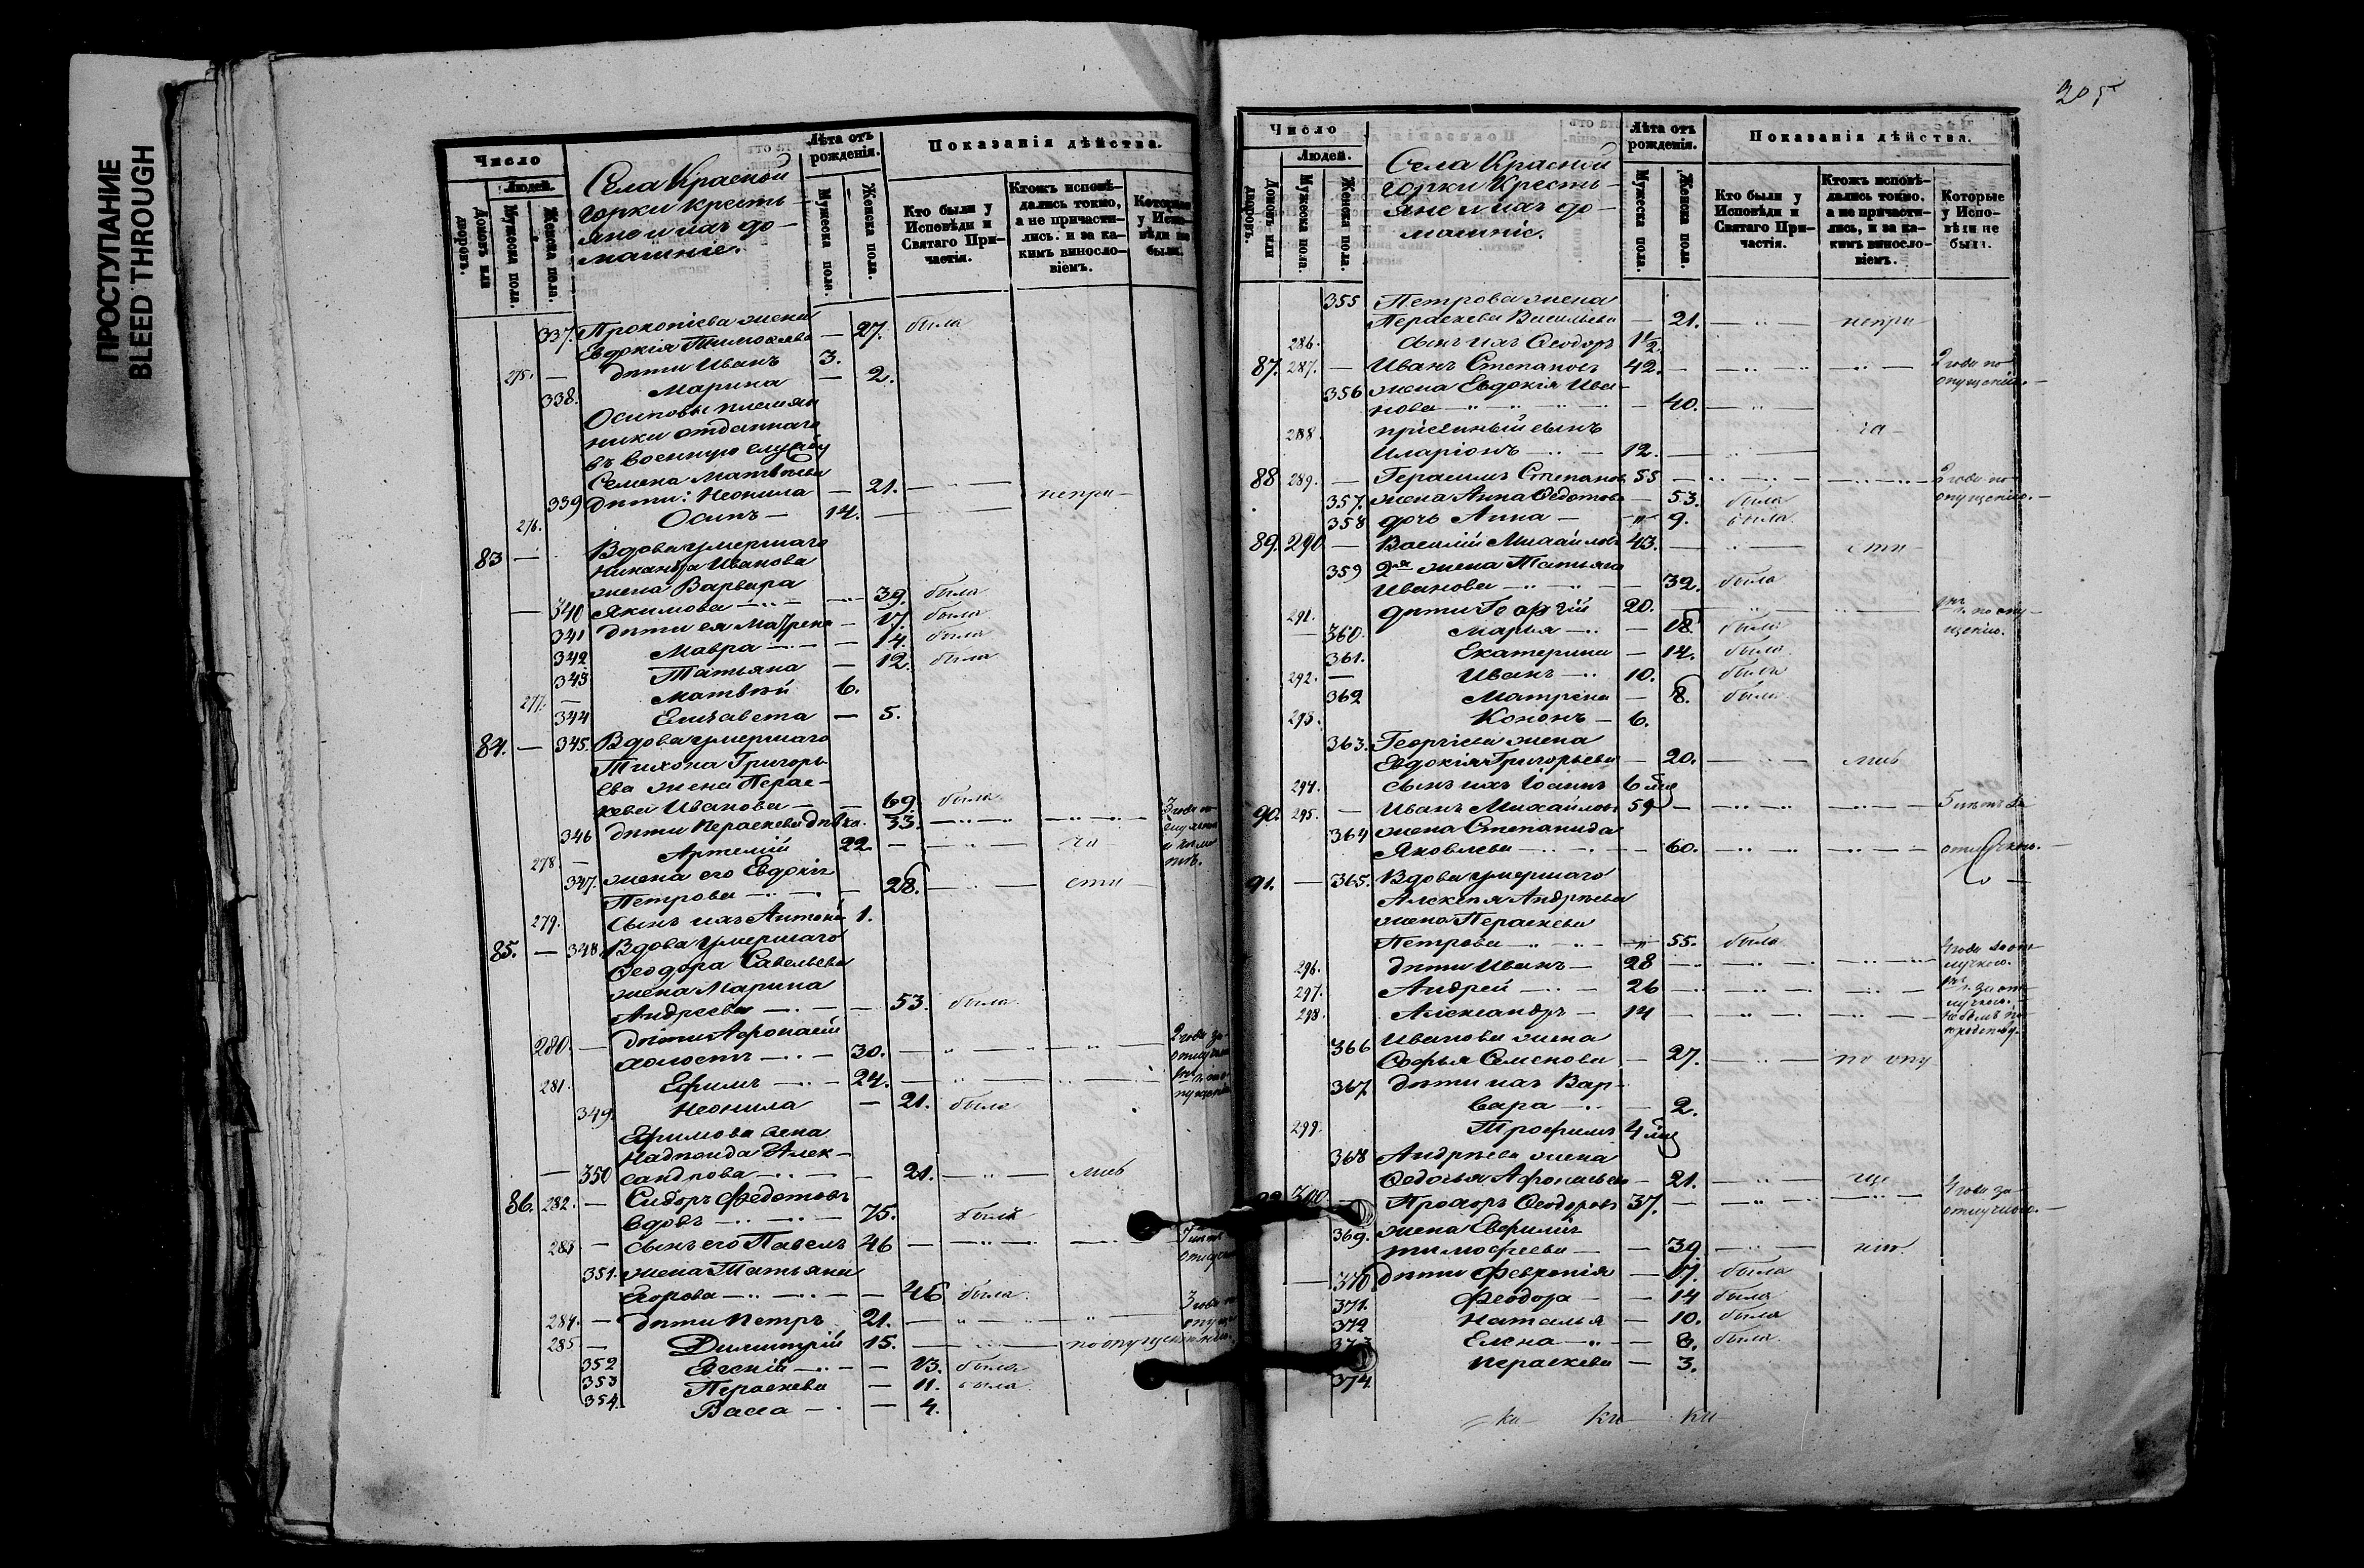 ПРОСТУПАНИЕ
BLEED THROUGH
Число
Людей.
Домовъ или дворовъ.
Мужеска пола.
Женска пола.
Села Красной
горки кресть-
яне и ихъ до-
машніе.
Лѣта отъ рожденія.
Мужеска пола.
Женска пола.
Показанія дѣйства.
Кто были у Исповѣди и Святаго При-частія.
Ктожъ исповѣ-дались токмо, а не причасти-лись. и за ка-кимъ винносло-віемъ.
Которые у Испо-вѣди не были.
337. Прокопіева жена
Евдокія Тимоѳеева — 27. была
275. — дѣти Иванъ 3.
338. Марина — 2.
Осиповы племян
ники отданнаго
въ военную службу
Семена Матвѣева
339 дѣти: Неонила — 21. непри-
276. Осипъ — 14.
83 — Вдова умершаго
Никанора Иванова
жена Варвара
— 340 Якимова — 39. была
341 дѣти ея Матрена — 17. была
342 Мавра — 14. была
343 Татьяна — 12. была
277. — Матвѣй 6.
344 Елисавета — 5.
84. — 345. Вдова умершаго
Тихона Григорь-
ева жена Парас-
кева Иванова — 69. была
346 дѣти Параскева дѣвка. 33.
278 — Артемій 22. ча
347. жена его Евдокія
Петрова — 28. сти
279. сынъ ихъ Антоній 1.
85. — 348. Вдова умершаго
Ѳеодора Савельева
жена Марина
Андреева — 53. была
280. — дѣти Аѳонасій
холостъ — 30. 2 года за
281. Ефимъ — 24.
349. Неонила — 21. была
Ефимова жена
Надежда Алек-
— 350 сандрова — 21. лись
86. 282. — Сидоръ Федотовъ
вдовъ — 75. былъ
283 — сынъ его Павелъ 46
351. жена Татьяна
Егорова — 46 была.
284. — дѣти Петръ 21. 3 года
285 — Димитрій 15. по опущенію
352 Евгенія — 13. была
353 Параскева — 11. была.
354. Васса — 4.
205
Число
Людей.
Домовъ или дворовъ.
Мужеска пола.
Женска пола.
Села Красной
горки Кресть-
яне и ихъ до-
машніе.
Лѣта отъ рожденія.
Мужеска пола.
Женска пола.
Показанія дѣйства.
Кто были у Исповѣди и Святаго При-частія.
Ктожъ исповѣ-дались токмо. а не причасти-лись, и за ка-кимъ винносло-віемъ.
Которые у Испо-вѣди не были.
355 Петрова жена
Параскева Васильева — 21. непри
286. сынъ ихъ Ѳеодоръ 1 1/2.
87. 287. — Иванъ Степановъ 42. 2 года по
опущенію.
356 жена Евдокія Ива-
нова — 40.
288. пріемный сынъ ча-
Иларіонъ — 12.
88 289. — Герасимъ Степановъ 55 2 года по
опущенію.
357. жена Анна Ѳедотова — 53. была
358 дочь Анна — 9. была
89. 290 — Василій Михайловъ 43. сти-
359 2я жена Татьяна
Иванова — 32. была
291. дѣти Георгій 20. по опу-
щенію.
— 360. Марья — 18. была
361. Екатерина — 14. была
292. — Иванъ — 10. былъ
362 Матрена — 8. была
293. Кононъ — 6.
363. Георгіева жена
Евдокія Григорьева — 20. лись
294. сынъ ихъ Іоаннъ 6 мѣс
90. 295. — Иванъ Михайловъ 59 5 лѣтъ за
364 жена Степанида
Яковлева — 60. отлучкою.
91. — 365. Вдова умершаго
Алексѣя Андреева
жена Параскева
Петрова — 55. была
296. дѣти Иванъ — 28 4 года за от-
лучкою.
297. Андрей — 26 за от-
лучкою.
298. Александръ — 14
366 Иванова жена
Софья Семенова — 27. по опу
367. дѣти ихъ Вар-
вара — 2.
299. Трофимъ 4 мѣс
368 Андреева жена
Ѳедосья Аѳонасьева — 21. ще
92. 300 — Прохоръ Ѳеодоровъ 37. 4 года за
отлучкою.
369. жена Евфимія
Тимофеева — 39. нію.
— 370 дѣти Февронія — 17. была
371. Феодора — 14 была
372 Наталья — 10. была
373 Елена — 8. была.
374. Параскева — 3.